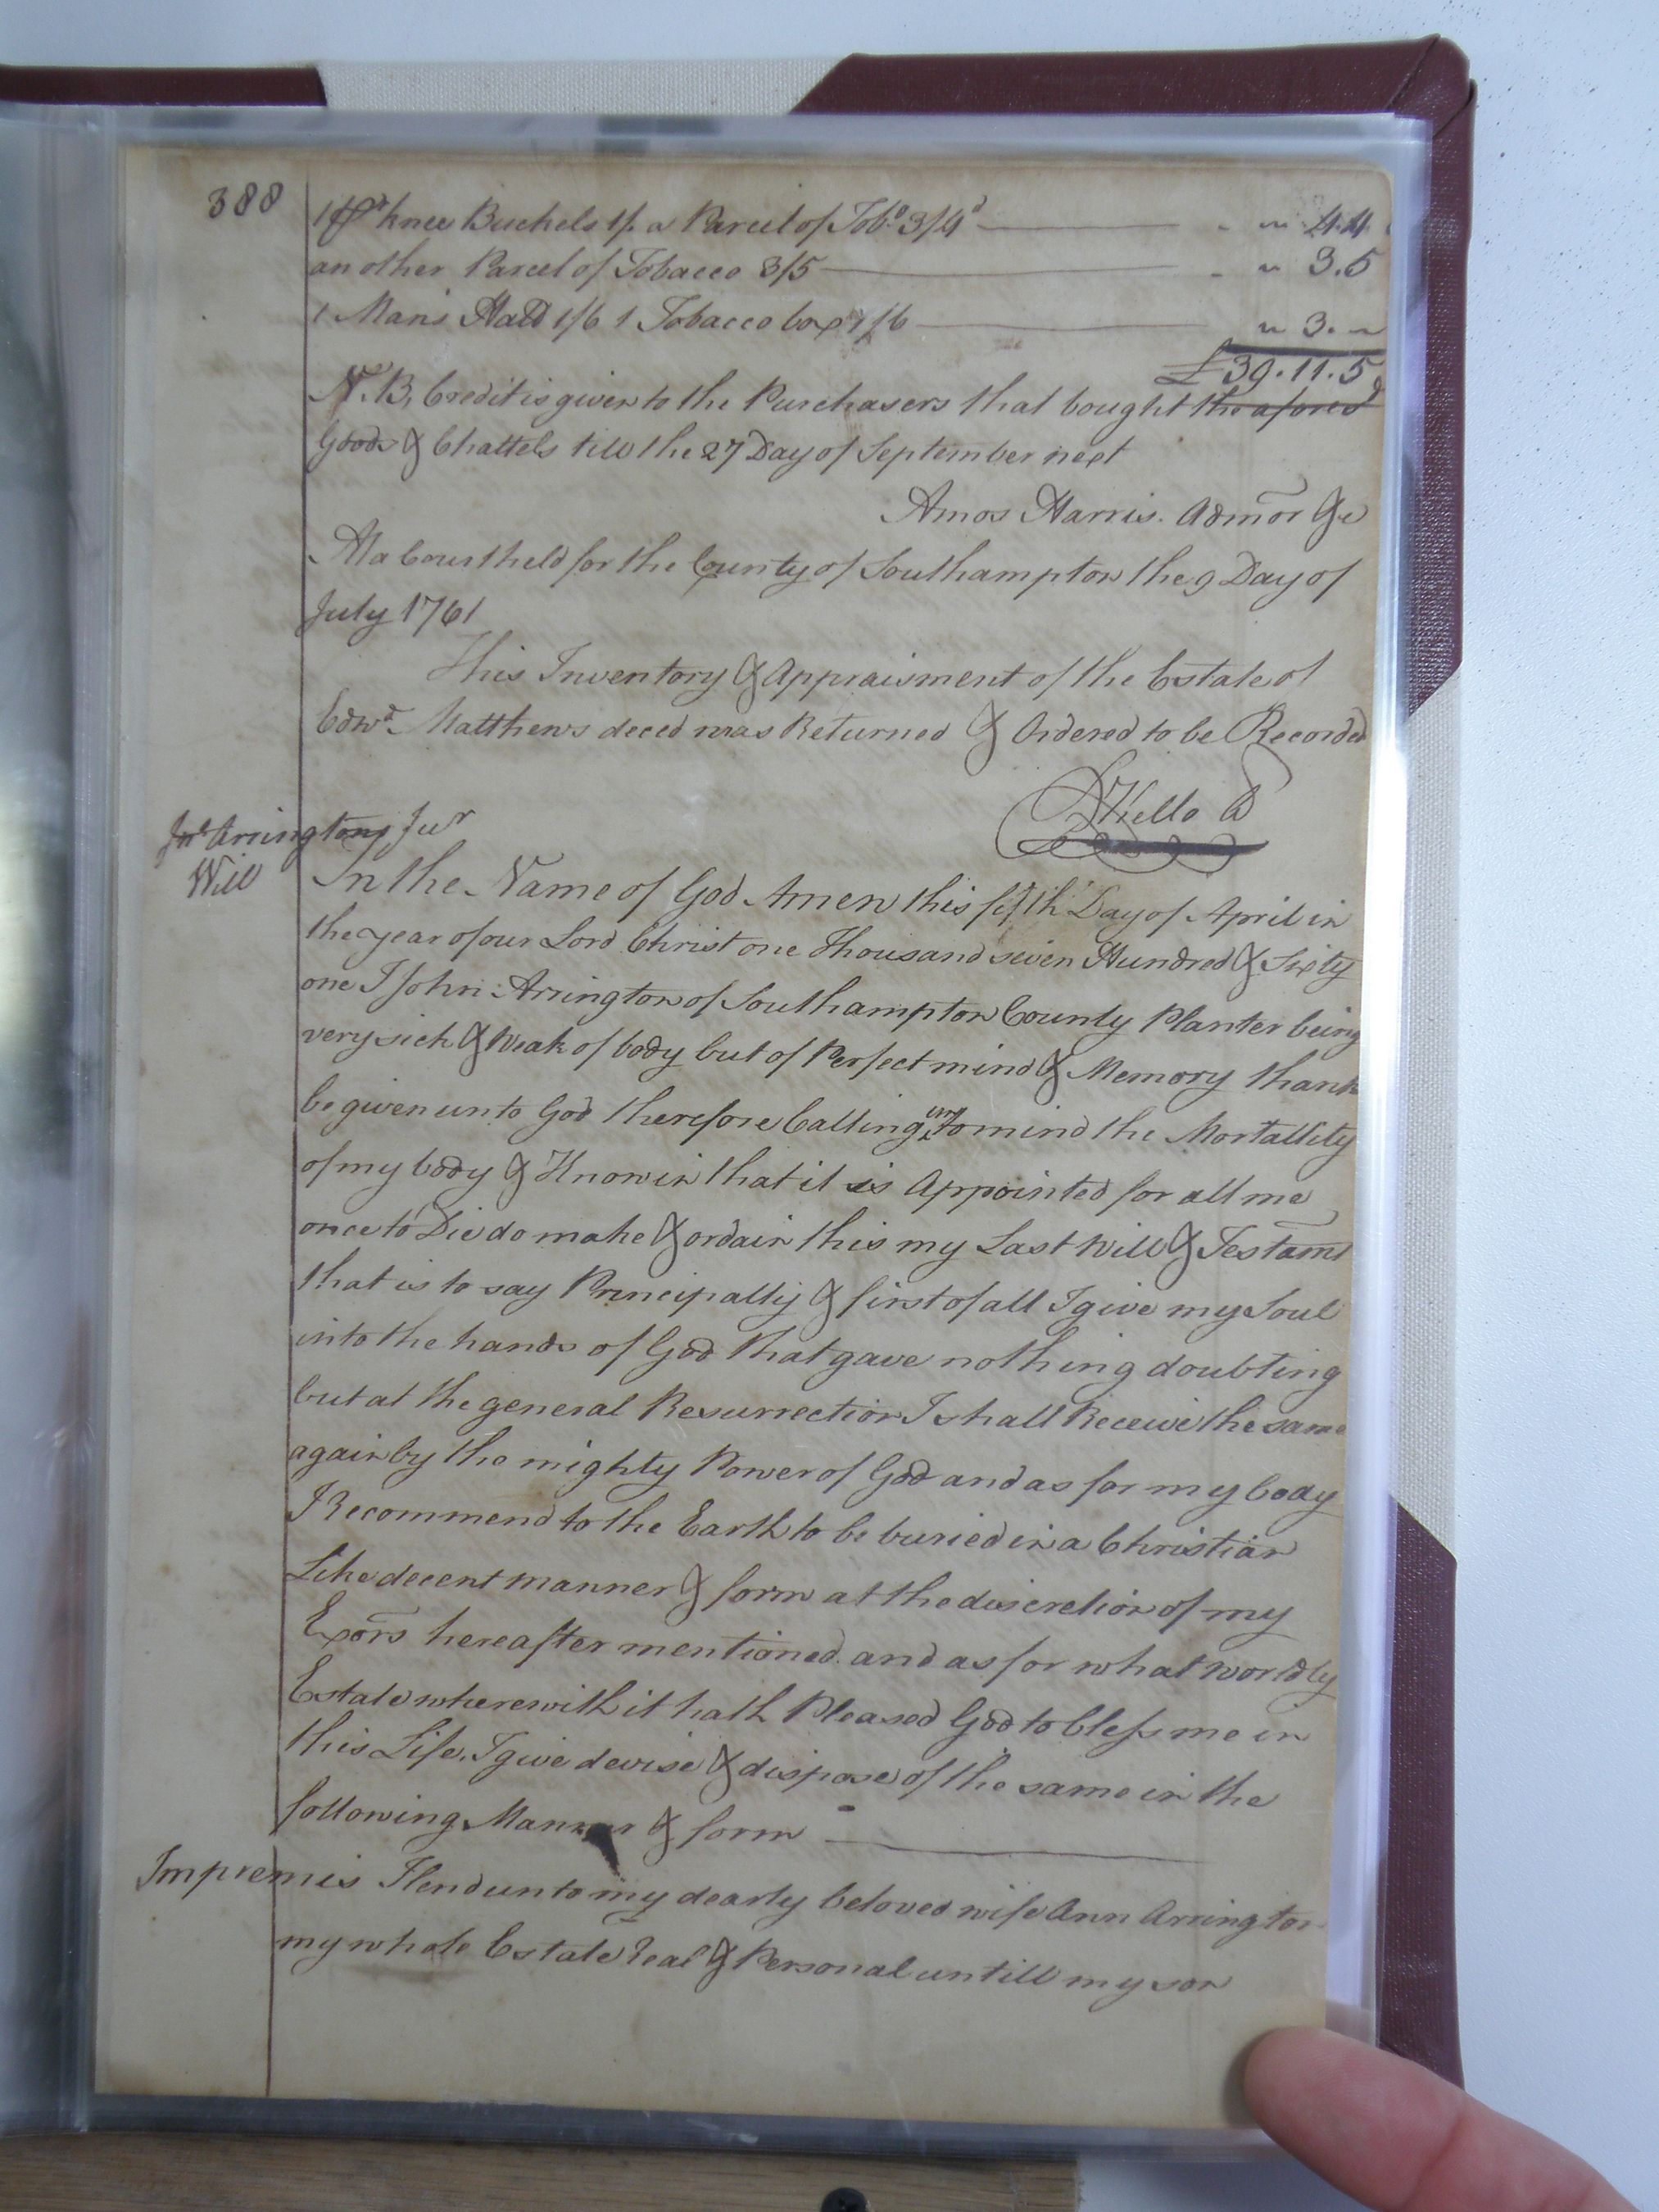 388
1 pr knee Buckels 1/. a Parcel of Tobo. 3/4d — " 4.4
another Parcel of Tobacco 3/5 — " 3.5
1 Mans Hatt 1/6 1 Tobacco box 1/6 — " 3. "
£39.11.5
N.B, Credit is given to the Purchasers that bought the aforesd
Goods & Chattels till the 27 Day of September next
Amos Harris. Admor &c
At a Court held for the County of Southampton the 9 Day of
July 1761
This Inventory & Appraisment of the Estate of
Edwd. Matthews deced was Returned & Ordered to be Recorded
Kello
Jno Arringtons Junr
Will
In the Name of God Amen this fifth Day of April in
the year of our Lord Christ one Thousand seven Hundred & Sixty
one I John Arrington of Southampton County Planter being
very sick & Weak of body but of Perfect mind & Memory thank
be given unto God therefore Calling unto mind the Mortallity
of my body & Knowin that it is Appointed for all me
once to Die do make & ordain this my Last Will & Testamt
that is to say Principally & first of all I give my Soul
into the hands of God that gave nothing doubting
but at the general Resurrection I shall Receive the same
again by the mighty Power of God and as for my body
I Recommend to the Earth to be buried in a Christian
Like decent manner & form at the discretion of my
Exors hereafter mentioned. and as for what worldly
Estate wherewith it hath Pleased God to bless me in
this Life, I give devise & dispose of the same in the
following Manner & form —
Impremis I lend unto my dearly beloved wife Ann Arrington
my whole Estate real & Personal untill my son